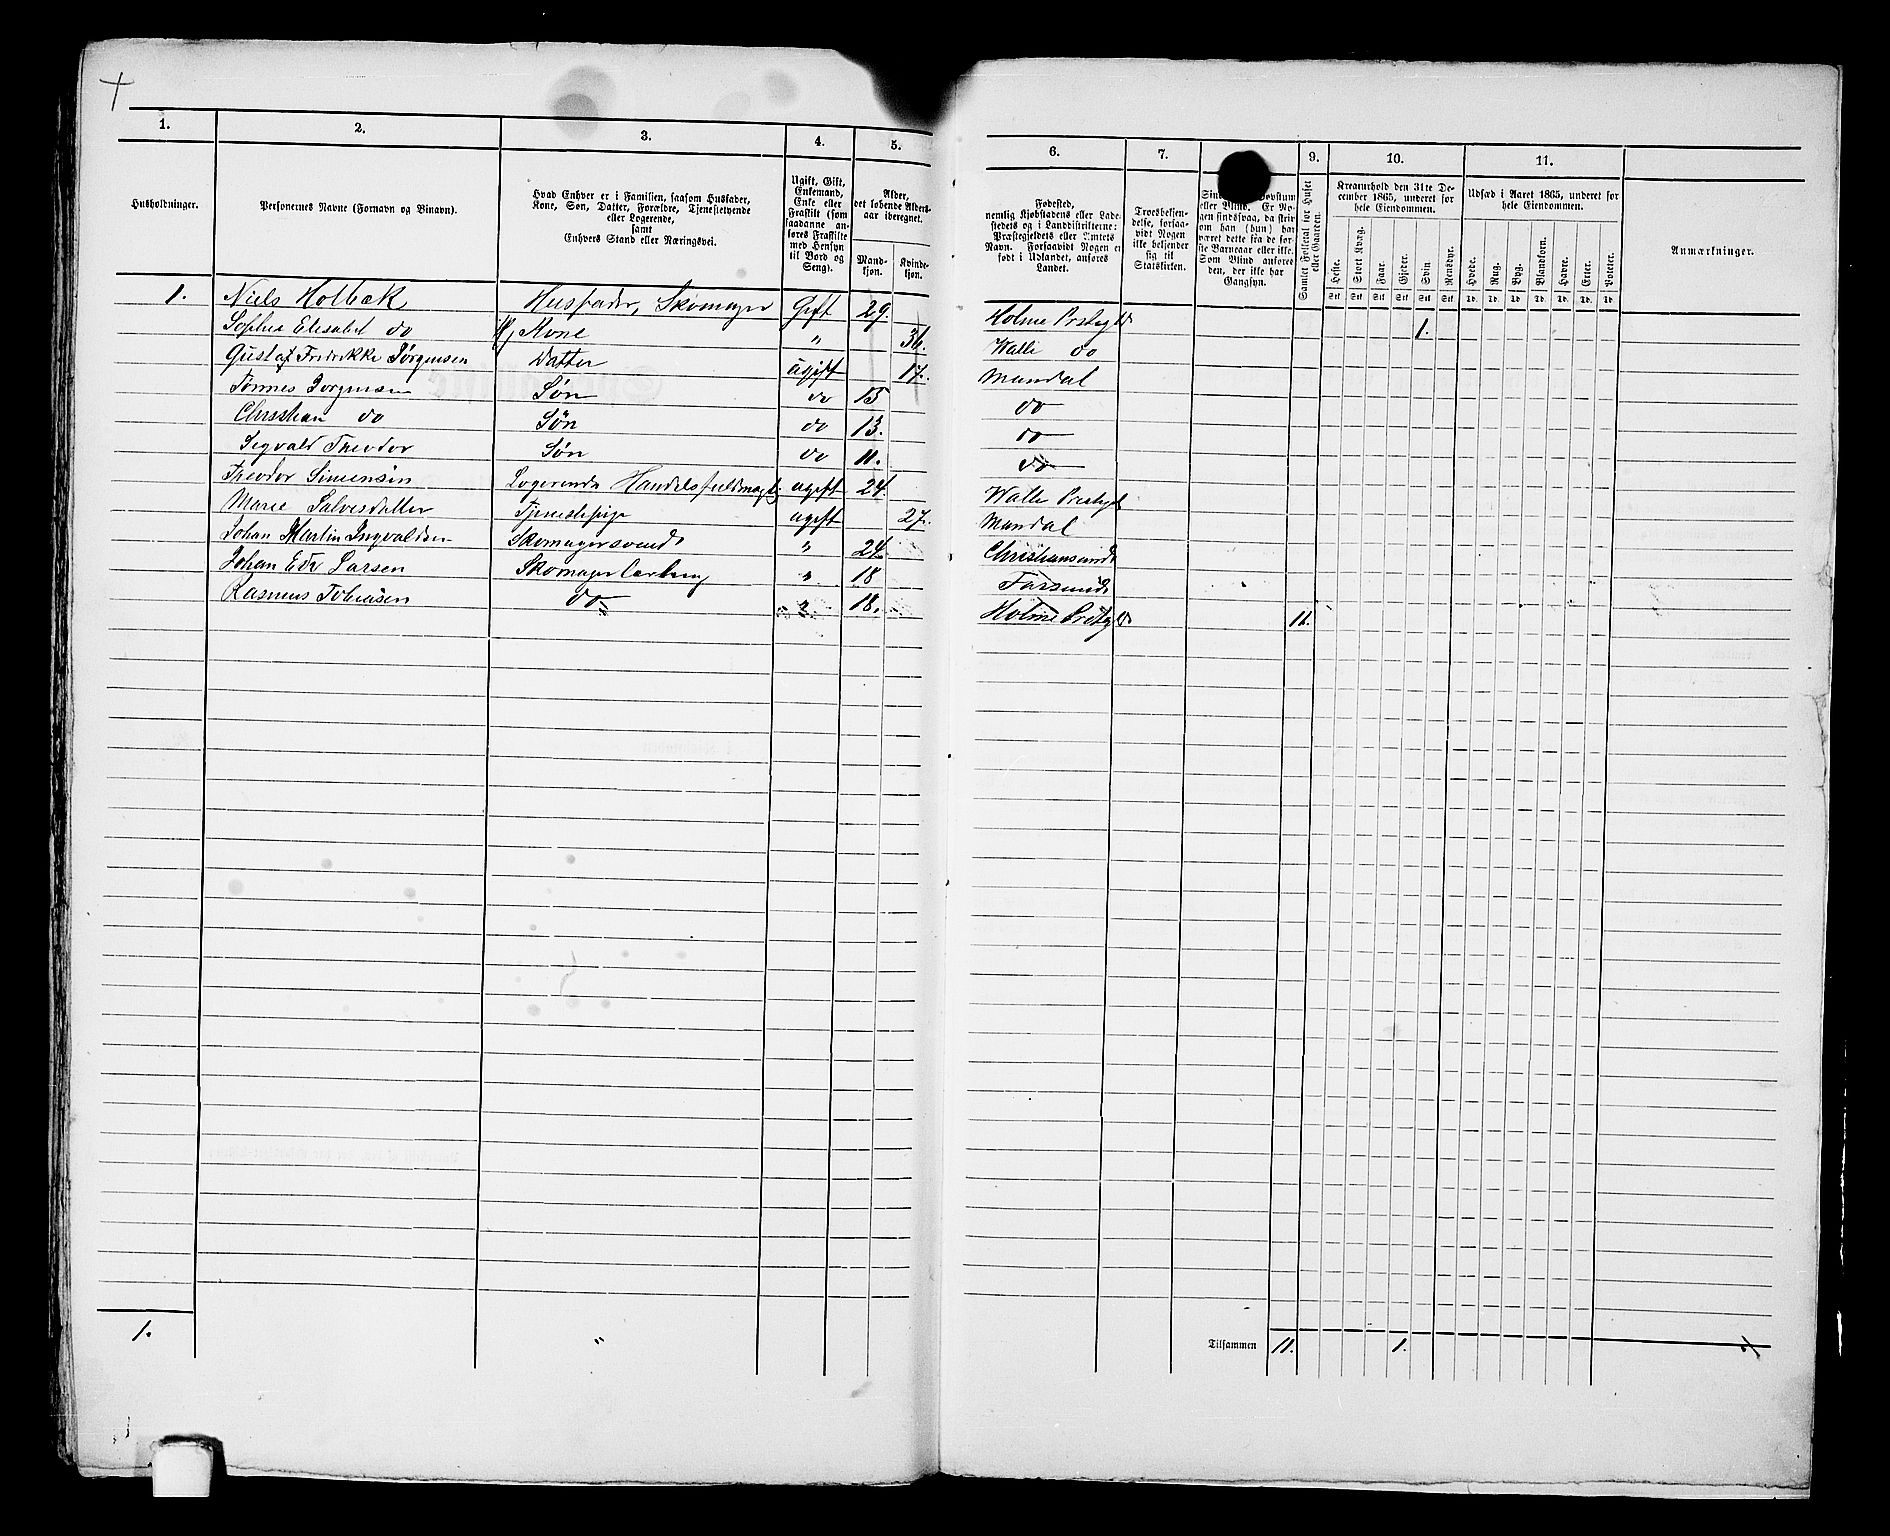 1. 2. 3. 4. 5. 6. 7. 9. 10. 11.
Husholdninger.
Personernes Navne (Fornavn og Binavn).
Hvad Enhver er i Familien, saasom Husfader,
Kone, Søn, Datter, Forældre, Tjenestetyende
eller Logerende,
samt
Enhvers Stand eller Næringsvei.
Ugift, Gift,
Enkemand,
Enke eller
Fraskilt (som
saadanne an-
føres Fraskilte
med Hensyn
til Bord og
Seng).
Alder,
det løbende Alders-
aar iberegnet.
Mand-
kjøn.
Kvinde-
kjøn.
Fødested,
nemlig Kjøbstadens eller Lade-
stedets og i Landdistrikterne:
Præstegjeldets eller Amtets
Navn. Forsaavidt Nogen er
født i Udlandet, anføres
Landet.
Troesbekjen-
delse, forsaa-
vidt Nogen
ikke bekjender
sig til
Statskirken.
eller Blind. Er No-
gen sindssvag, da skriv
om han (hun) har
været dette fra de før-
ste Barneaar eller ikke.
Som Blind anføres
den, der ikke har
Gangsyn.
Samlet Folketal for Huset
eller Gaarden.
Kreaturhold den 31te De-
cember 1865, underet for
hele Eiendommen.
Heste. Stort Kvæg. Faar. Gjeder. Svin Rensdyr.
Stk Stk Stk Stk Stk Stk
Udsæd i Aaret 1865, underet for
hele Eiendommen.
Hvede. Rug. Byg. Blandkorn. Havre. Erter. Poteter.
Td. Td. Td. Td. Td. Td. Td.
Anmærkninger.
1. Niels Holbæk Husfader, Skomager Gift 29. Holme Prstgld 1.
Sophie Elisabet do Hj Kone " 36. Walle do
Gustaf Fredrikke Jørgensen Datter ugift 17. Mandal
Tønnes Jorgensen Søn do 15 do
Christian do Søn do 13. do
Sigvald Theodor Søn do 11. do
Theodor Simensen Logerende Handelsfuldmægtig ugift 24. Walle Prestgl
Marie Salvesdatter Tjenestepige ugift 27. Mandal
Johan Martin Ingvaldsen Skomagersvend " 24. Christiansand
Johan Edv Larsen Skomagerlærling " 18 Farsund
Rasmus Tobiasen do " 18. Holme Prstgld 11.
1. "
Tilsammen 11. 1.